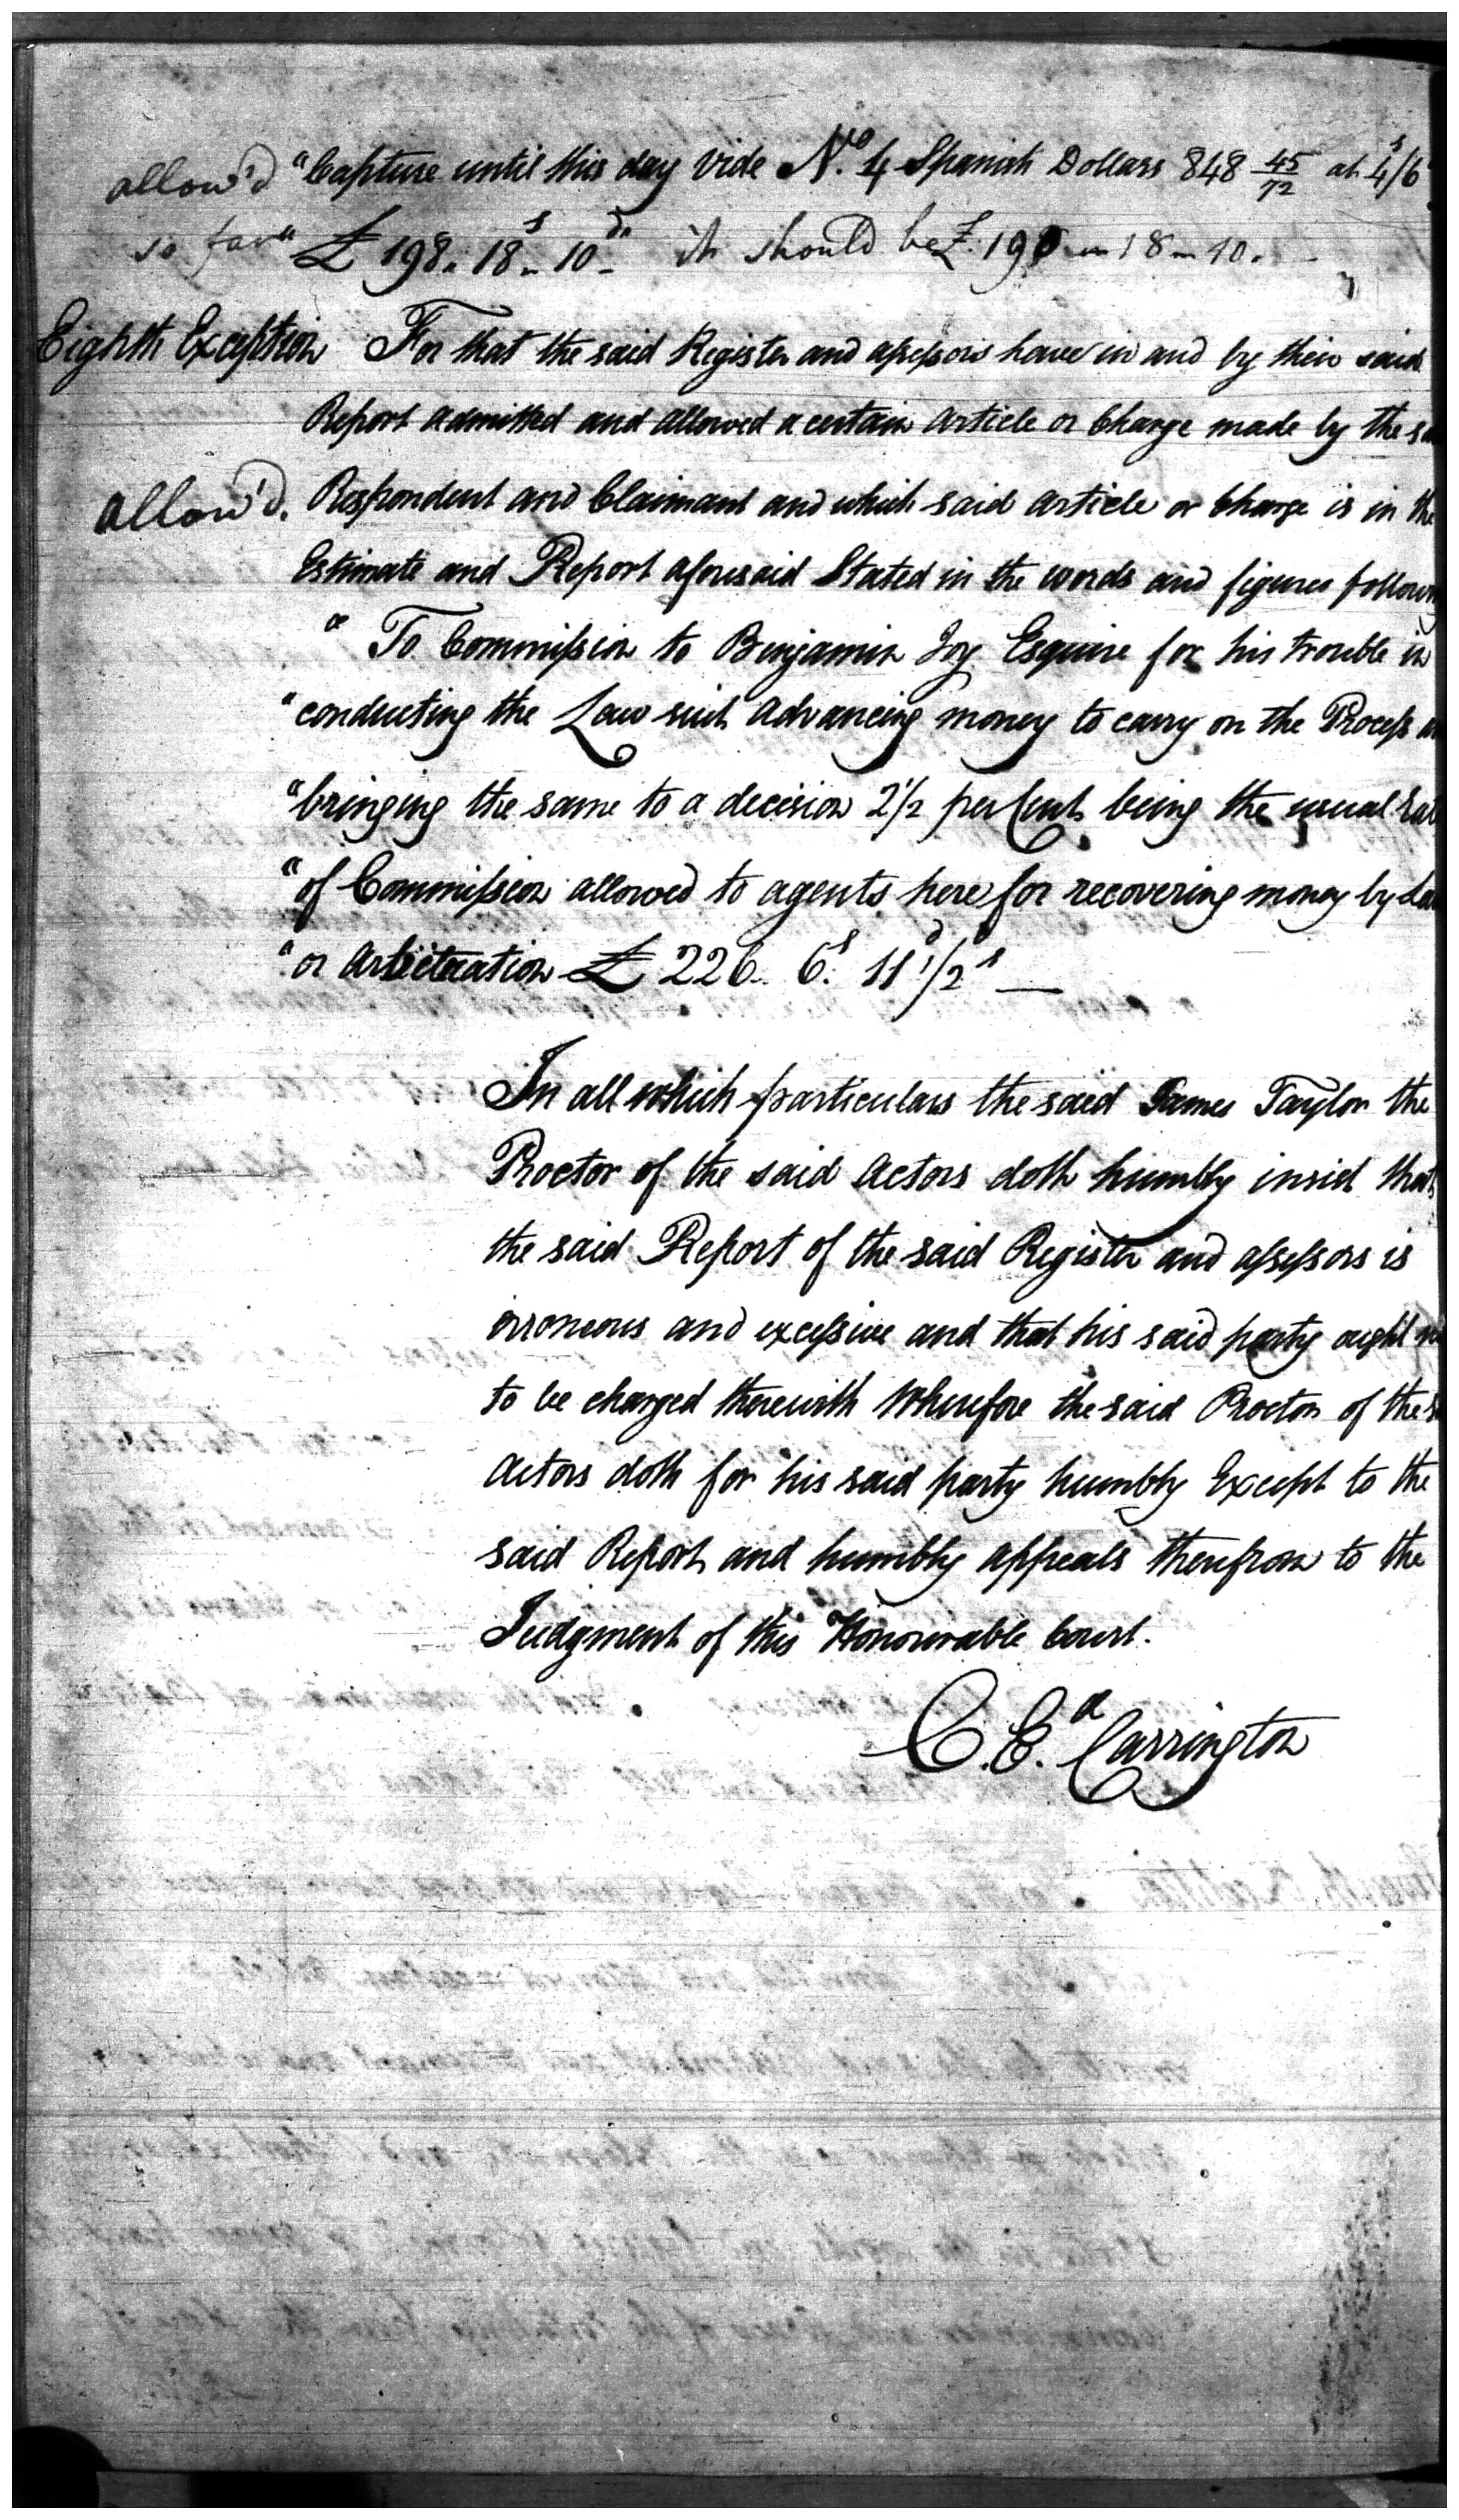 allow'd "Capture until this day Vide No. 4 Spanish Dollars 848 45/72 at 4s/6
so far" £ 198. 18s. 10d. it should be £. 190 - 18 - 10.
Eighth Exception For that the said Register and assessors have in and by their said
Report admitted and allowed a certain article or Charge made by the
allow'd. Respondent and Claimant and which said article or Charge is in the
Estimate and Report aforesaid Stated in the words and figures
" To Commission to Benjamin Joy Esquire for his trouble in
"conducting the Law suit advancing money to carry on the Process
"bringing the same to a decision 2 1/2 per Cent being the usual
"of Commission allowed to agents here for recovering money by
"or arbitration £ 226. 6s. 11 1/2d
In all which particulars the said James Taylor the
Proctor of the said Actors doth humbly insist that
the said Report of the said Register and assessors is
erroneous and excessive and that his said party ought
to be charged therewith Wherefore the said Proctor of the
Actors doth for his said party humbly Except to the
said Report and humbly appeals therefrom to the
Judgment of this Honourable Court.
C. Ed. Carrington